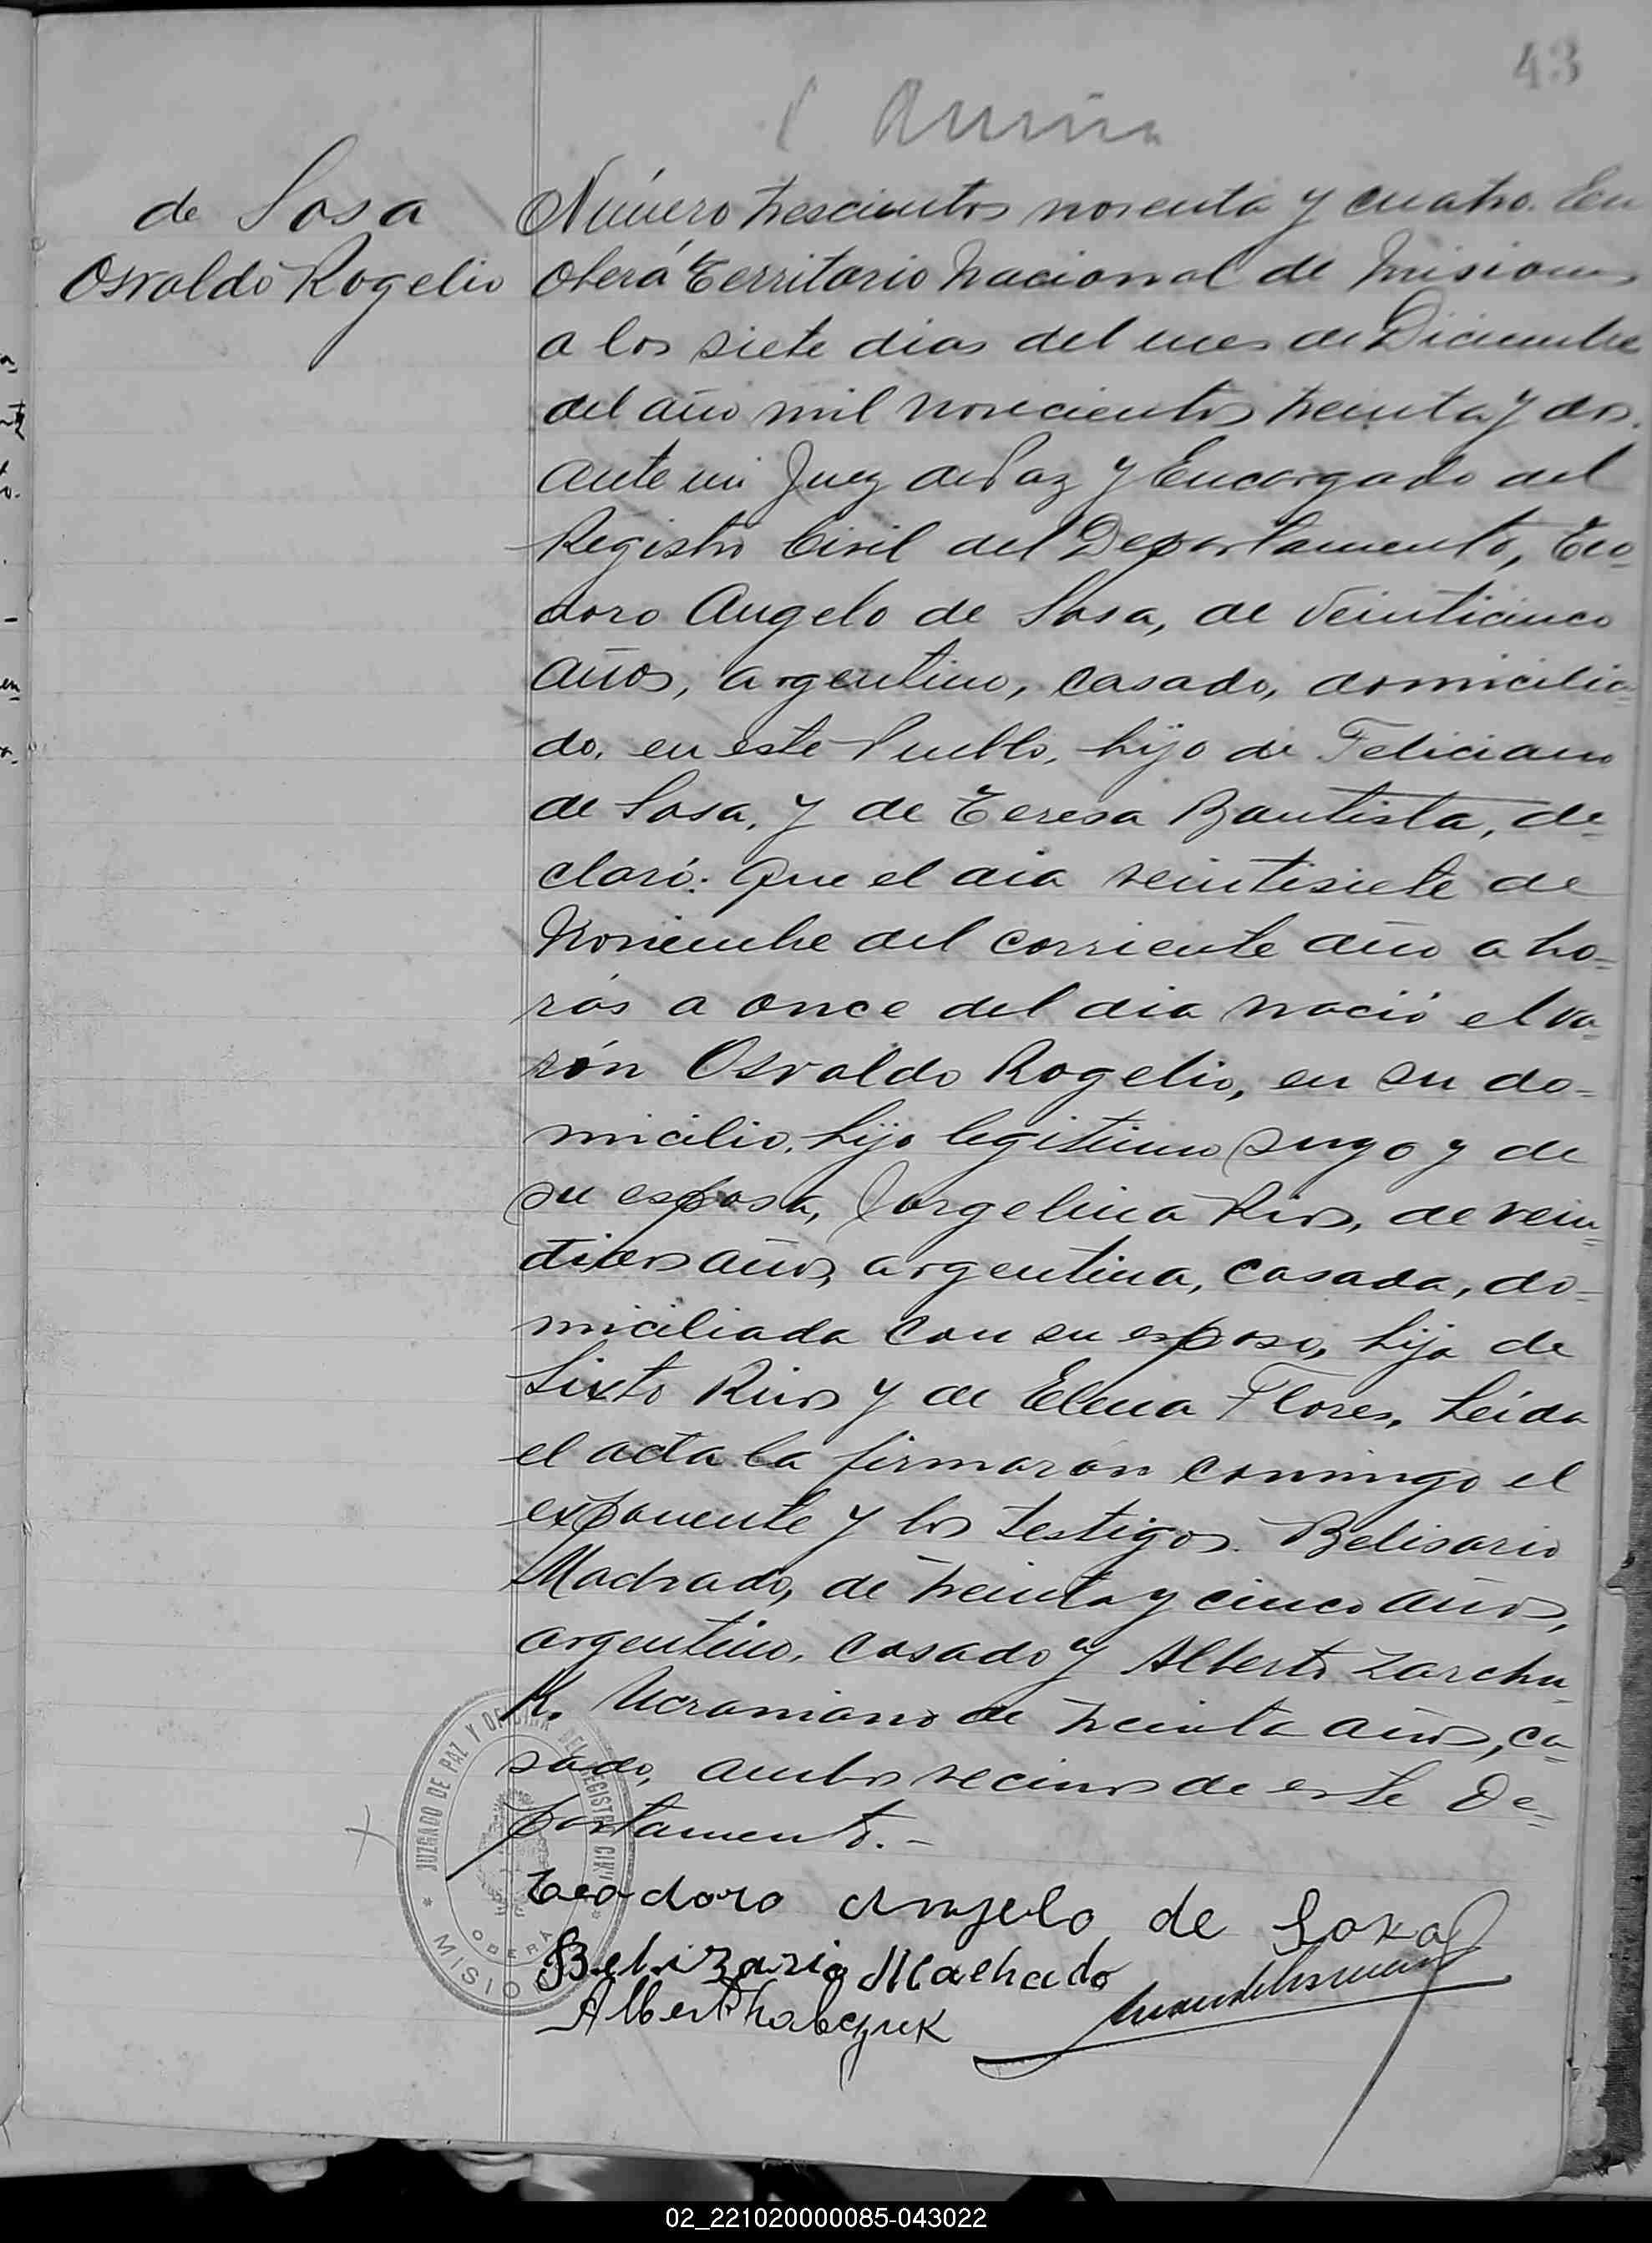 43
de Sosa
Osvaldo Rogelio
Número trescientos noventa y cuatro. En
Oberá Territorio Nacional de Misiones
a los siete dias del mes de Diciembre
del año mil novecientos treinta y dos.
ante mi Juez de Paz y Encargado del
Registro Civil del Departamento, Teo=
doro Angelo de Sosa, de veinticinco
años, argentino, casado, domicilia
do, en este Pueblo, hijo de Feliciano
de Sosa, y de Teresa Bautista, de=
claró: Que el dia veintisiete de
Noviembre del corriente año a ho=
ras a once del dia nació el va=
rón Osvaldo Rogelio, en su do=
micilio, hijo legitimo suyo y de
su esposa, Jorgelina Rios, de vein=
tidos años, argentina, casada, do=
miciliada con su esposo, hija de
Sixto Rios y de Elena Flores, Leída
el acta la firmaron conmigo el
exponente y los testigos. Belisario
Machado, de treinta y cinco años,
argentino, casado y Alberto Zarchu=
k. Ucraniano de treinta años, ca=
sado, ambos vecinos de este De=
partamento.-
JUZGADO DE PAZ Y OFICINA DEL REGISTRO CIVIL
OBERÁ
MISIO
Teodoro Angelo de Sosa
Belizario Machado
02_221020000085-043022